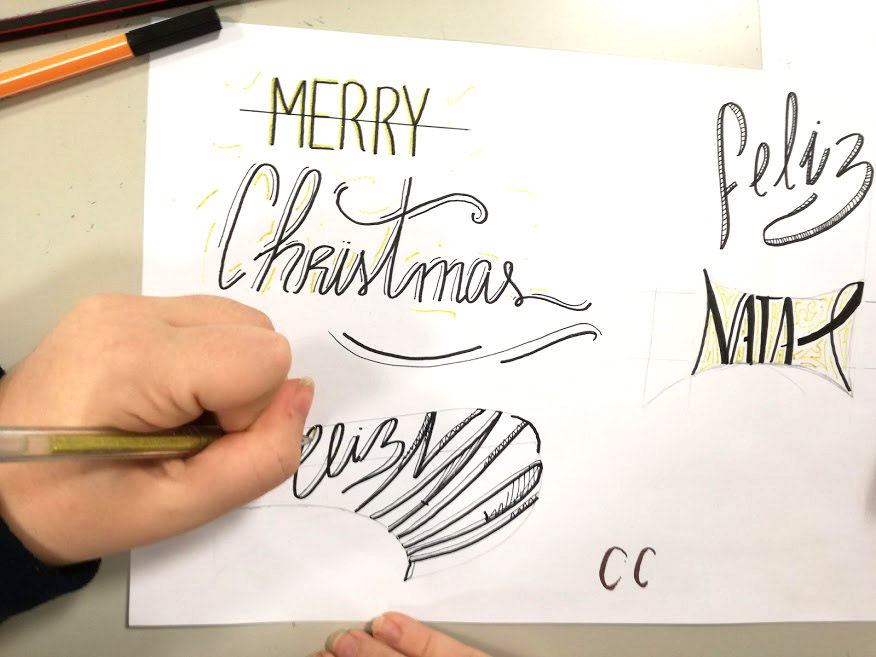 MERRY
Christmas
feliz
NATAL
eliz N
CC